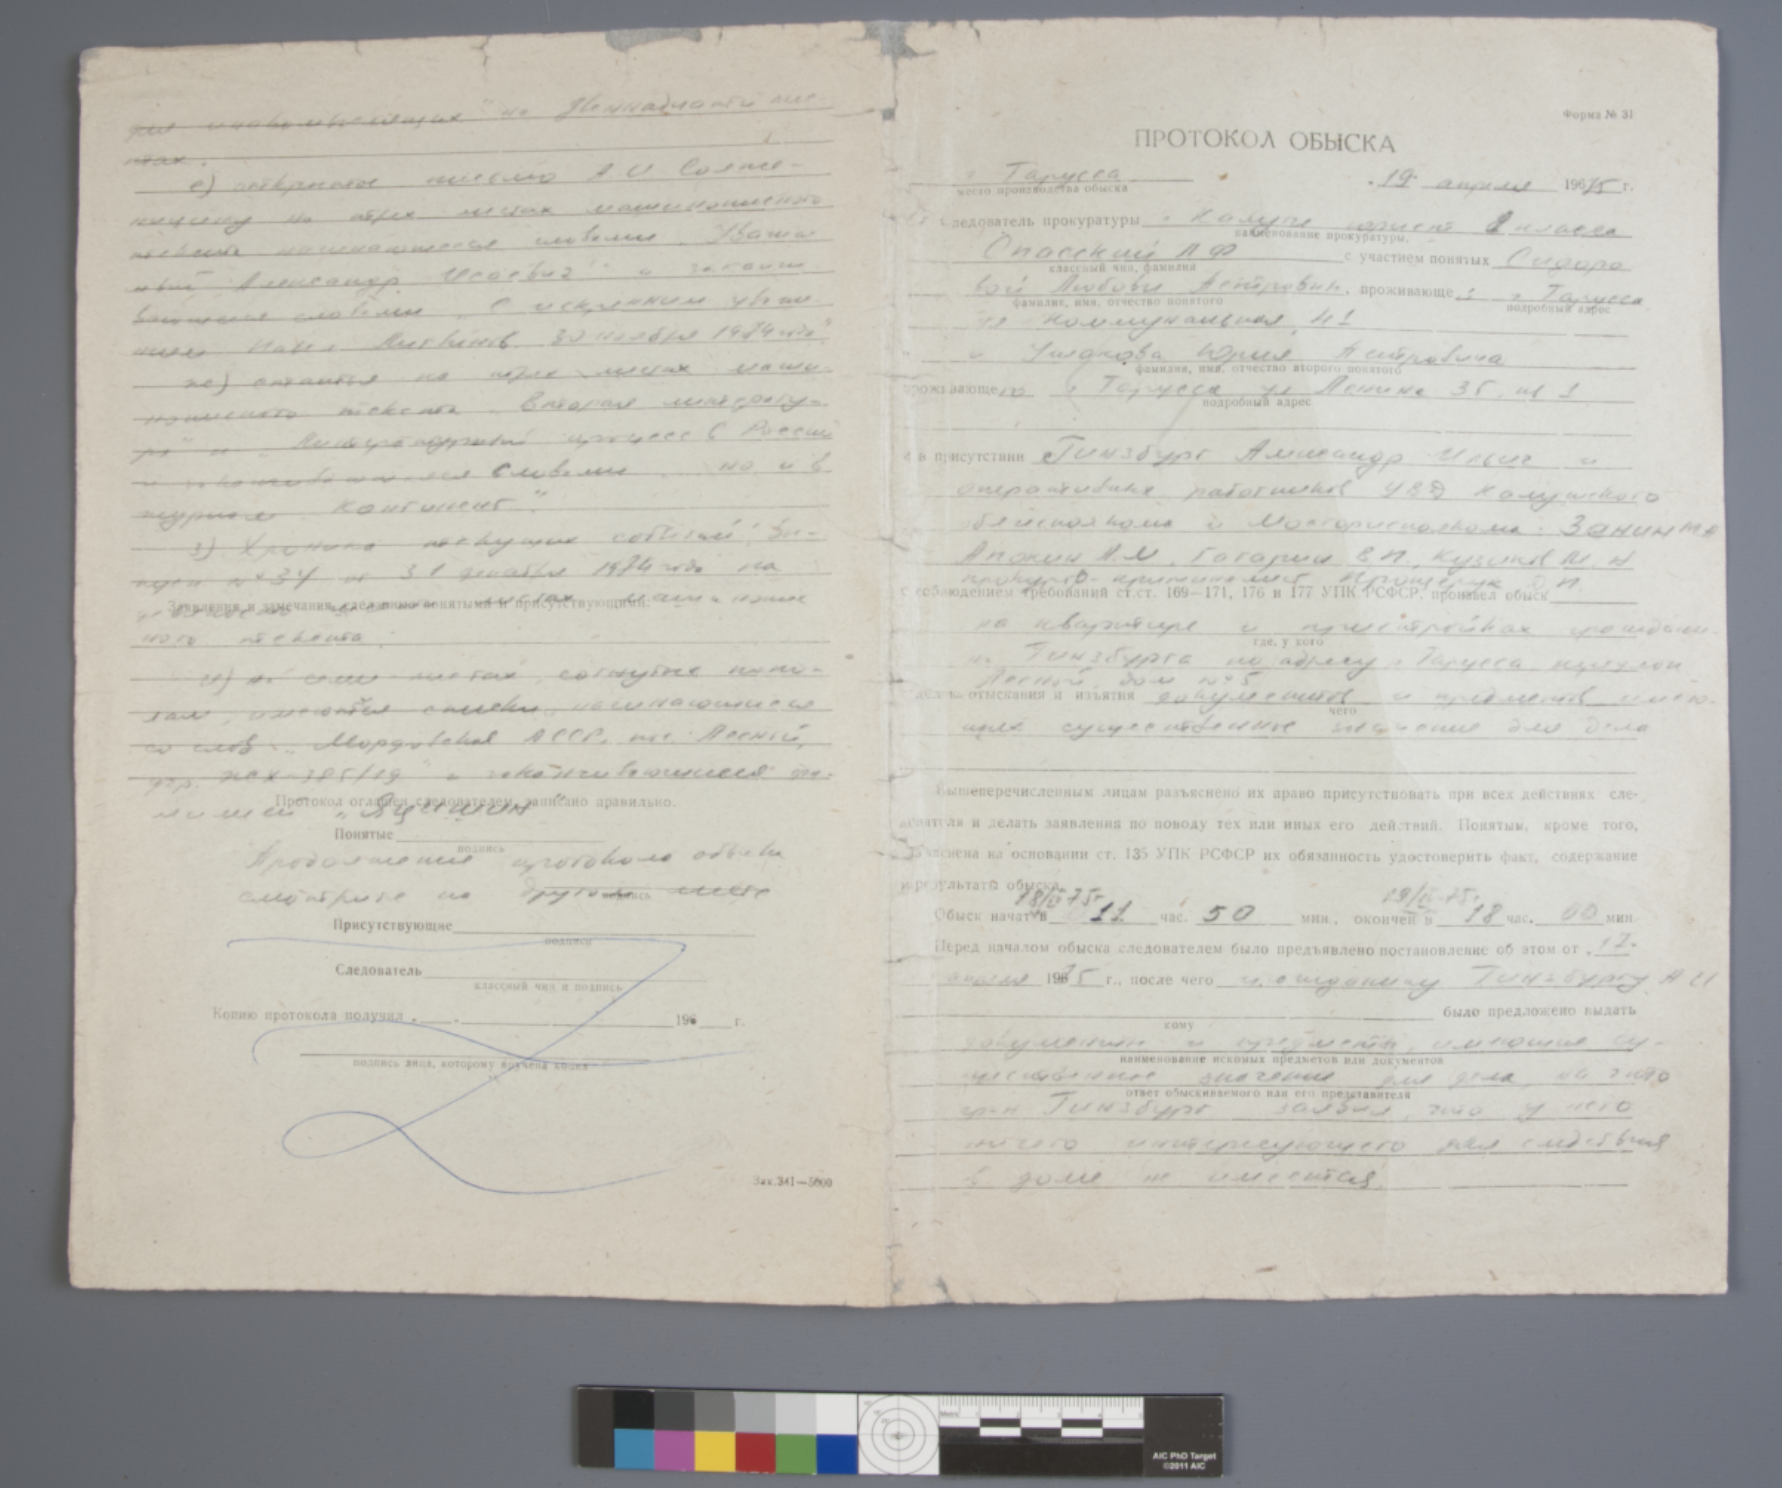 для инакомыслящих" на двенадцати лис-
тах.
е) открытое письмо А.И Солже-
ницину на трех листах машинописного
текста начинающееся словами „Уважае
мый Александр Исаевич" и заканчи
вающееся словами „С искренним уваже
нием Павел Литвинов 30 ноября 1974 года"
ж) статья на трех листах маши-
нописного текста „Вторая литерату-
ра" и „Литературный процесс в России
и заканчивающиеся словами „но и в
журнале Континент".
з) Хроника текущих событий, Вы-
пуск № 34 от 31 декабря 1974 года на
Заявления и замечания, сделанные понятыми и присутствующими:
листах машинопис
ного текста.
и) на семи листах, согнутые попо-
лам, имеются списки начинающиеся
со слов: „Мордовская АССР, пос. Лесной,
учр. ЖХ-385/19" и заканчивающиеся фа-
Протокол оглашен следователем, записано правильно.
милией „Яцишин"
Понятые
подпись
Продолжение протокола обыска
смотрите на другом листе
подпись
Присутствующие
подпись
Следователь
классный чин и подпись
Копию протокола получил „ " 196 г.
подпись лица, которому вручена копия
Зак.341—5000
Форма № 31
ПРОТОКОЛ ОБЫСКА
г Таруса „19" апреля 1975 г.
место производства обыска
Следователь прокуратуры г Калуги юрист 1 класса
наименование прокуратуры,
Спасский А Ф с участием понятых Сидоро
классный чин, фамилия
вой Любови Петровны, проживающей: г Таруса
фамилия, имя, отчество понятого подробный адрес
ул Коммунальная, 41
и Ушакова Юрия Петровича
фамилия, имя, отчество второго понятого
проживающего г Таруса ул Ленина 35, кв 1
подробный адрес
и в присутствии Гинзбург Александр Ильич и
оперативных работников УВД Калужского
облисполкома и Мосгорисполкома: Занин
Апокин А.М, Гагарин Е.П, Кузиков
прокурор-криминалист
с соблюдением требований ст.ст. 169—171, 176 и 177 УПК РСФСР, произвел обыск
на квартире и пристройках граждани-
где, у кого
на Гинзбурга по адресу г Таруса, переулок
Лесной, дом № 5
с целью отыскания и изъятия документов и предметов имею-
чего
щих существенное значение для дела
Вышеперечисленным лицам разъяснено их право присутствовать при всех действиях сле-
дователя и делать заявления по поводу тех или иных его действий. Понятым, кроме того,
разъяснена на основании ст. 135 УПК РСФСР их обязанность удостоверить факт, содержание
и результаты обыска.
18/IV-75г 19/IV-75г
Обыск начат в 11 час. 50 мин., окончен в 18 час. 00 мин.
Перед началом обыска следователем было предъявлено постановление об этом от „17"
апреля 1975 г., после чего гражданину Гинзбургу А И
было предложено выдать
кому
документы и предметы, имеющие су-
наименование искомых предметов или документов
щественное значение для дела, на что
ответ обыскиваемого или его представителя
гр-н Гинзбург заявил, что у него
ничего интересующего для следствия
в доме не имеется.
AIC PhD Target
©2011 AIC